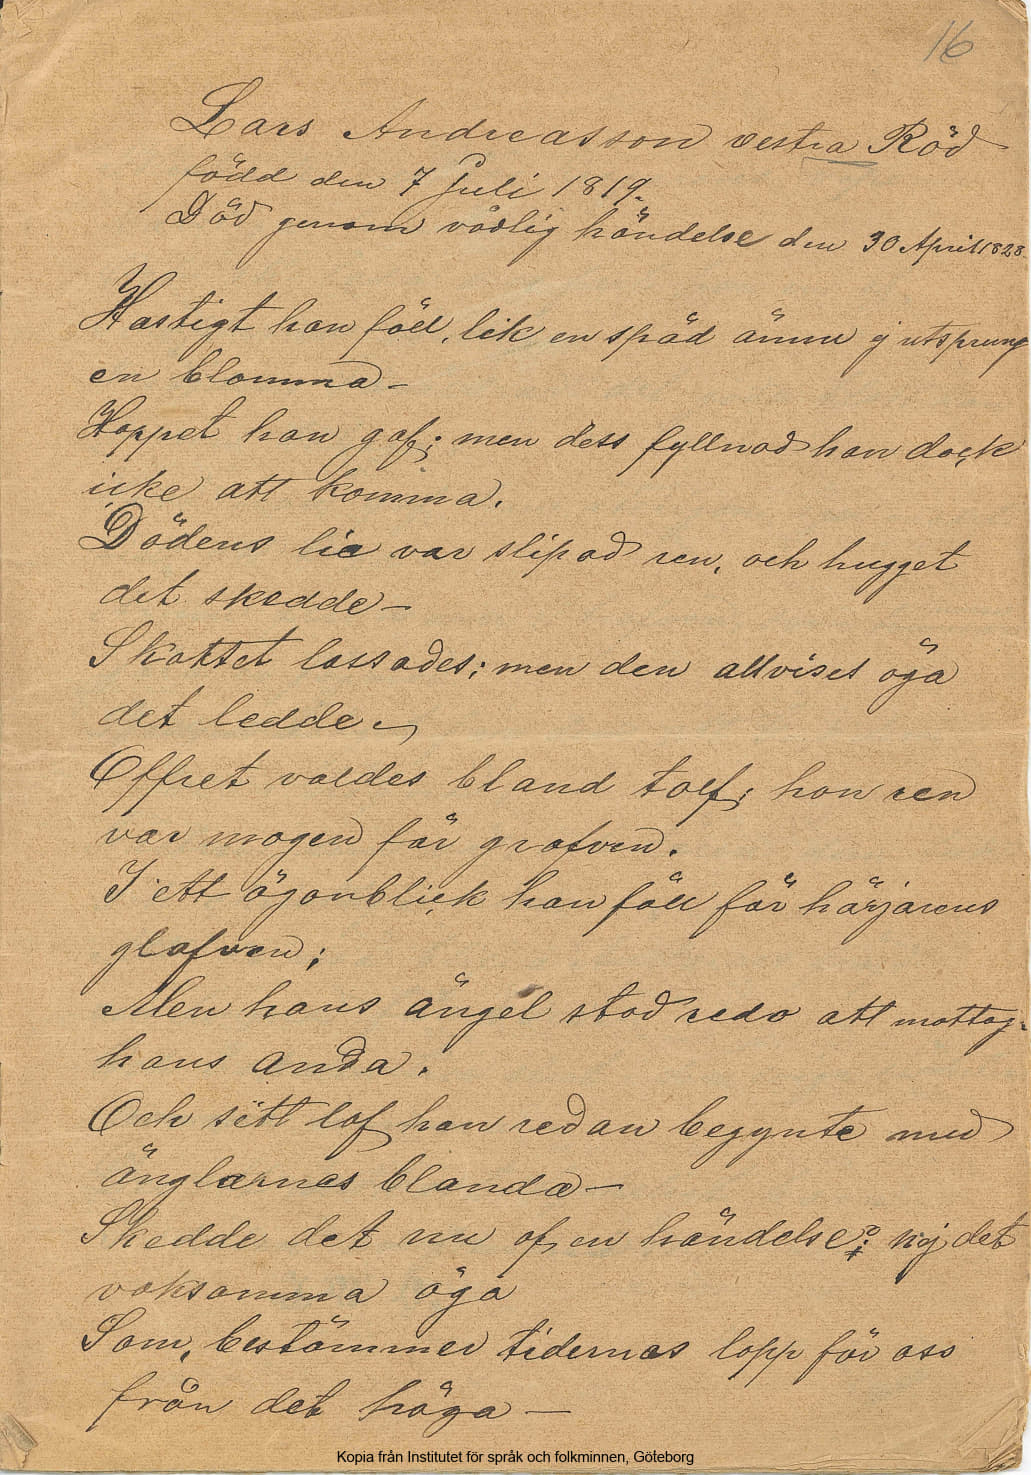 16
Lars Andreasson vestra Röd
född den 7 Juli 1819.
Död genom vådlig händelse den 30 April 1828.
Hastigt han föll, lik en späd ännu ej utsprung
en blomma –
Hoppet han gaf; men dess fyllnad han dock
icke att komma.
Dödens lia var slipad ren, och hugget
det skedde –
Skottet lossades; men den allvises öga
det ledde –
Offret valdes bland tolf; han ren
var mogen för grafven.
I ett ögonblick han föll för härjarens
glafven;
Men hans ängel stod redo att mottag-
hans anda.
Och sitt lof han redan begynte med
änglarnes blanda –
Skedde det nu af en händelse? nej det
vaksamma öga
Som, bestämmer tidernas lopp för oss
från det höga –
Kopia från Institutet för språk och folkminnen, Göteborg